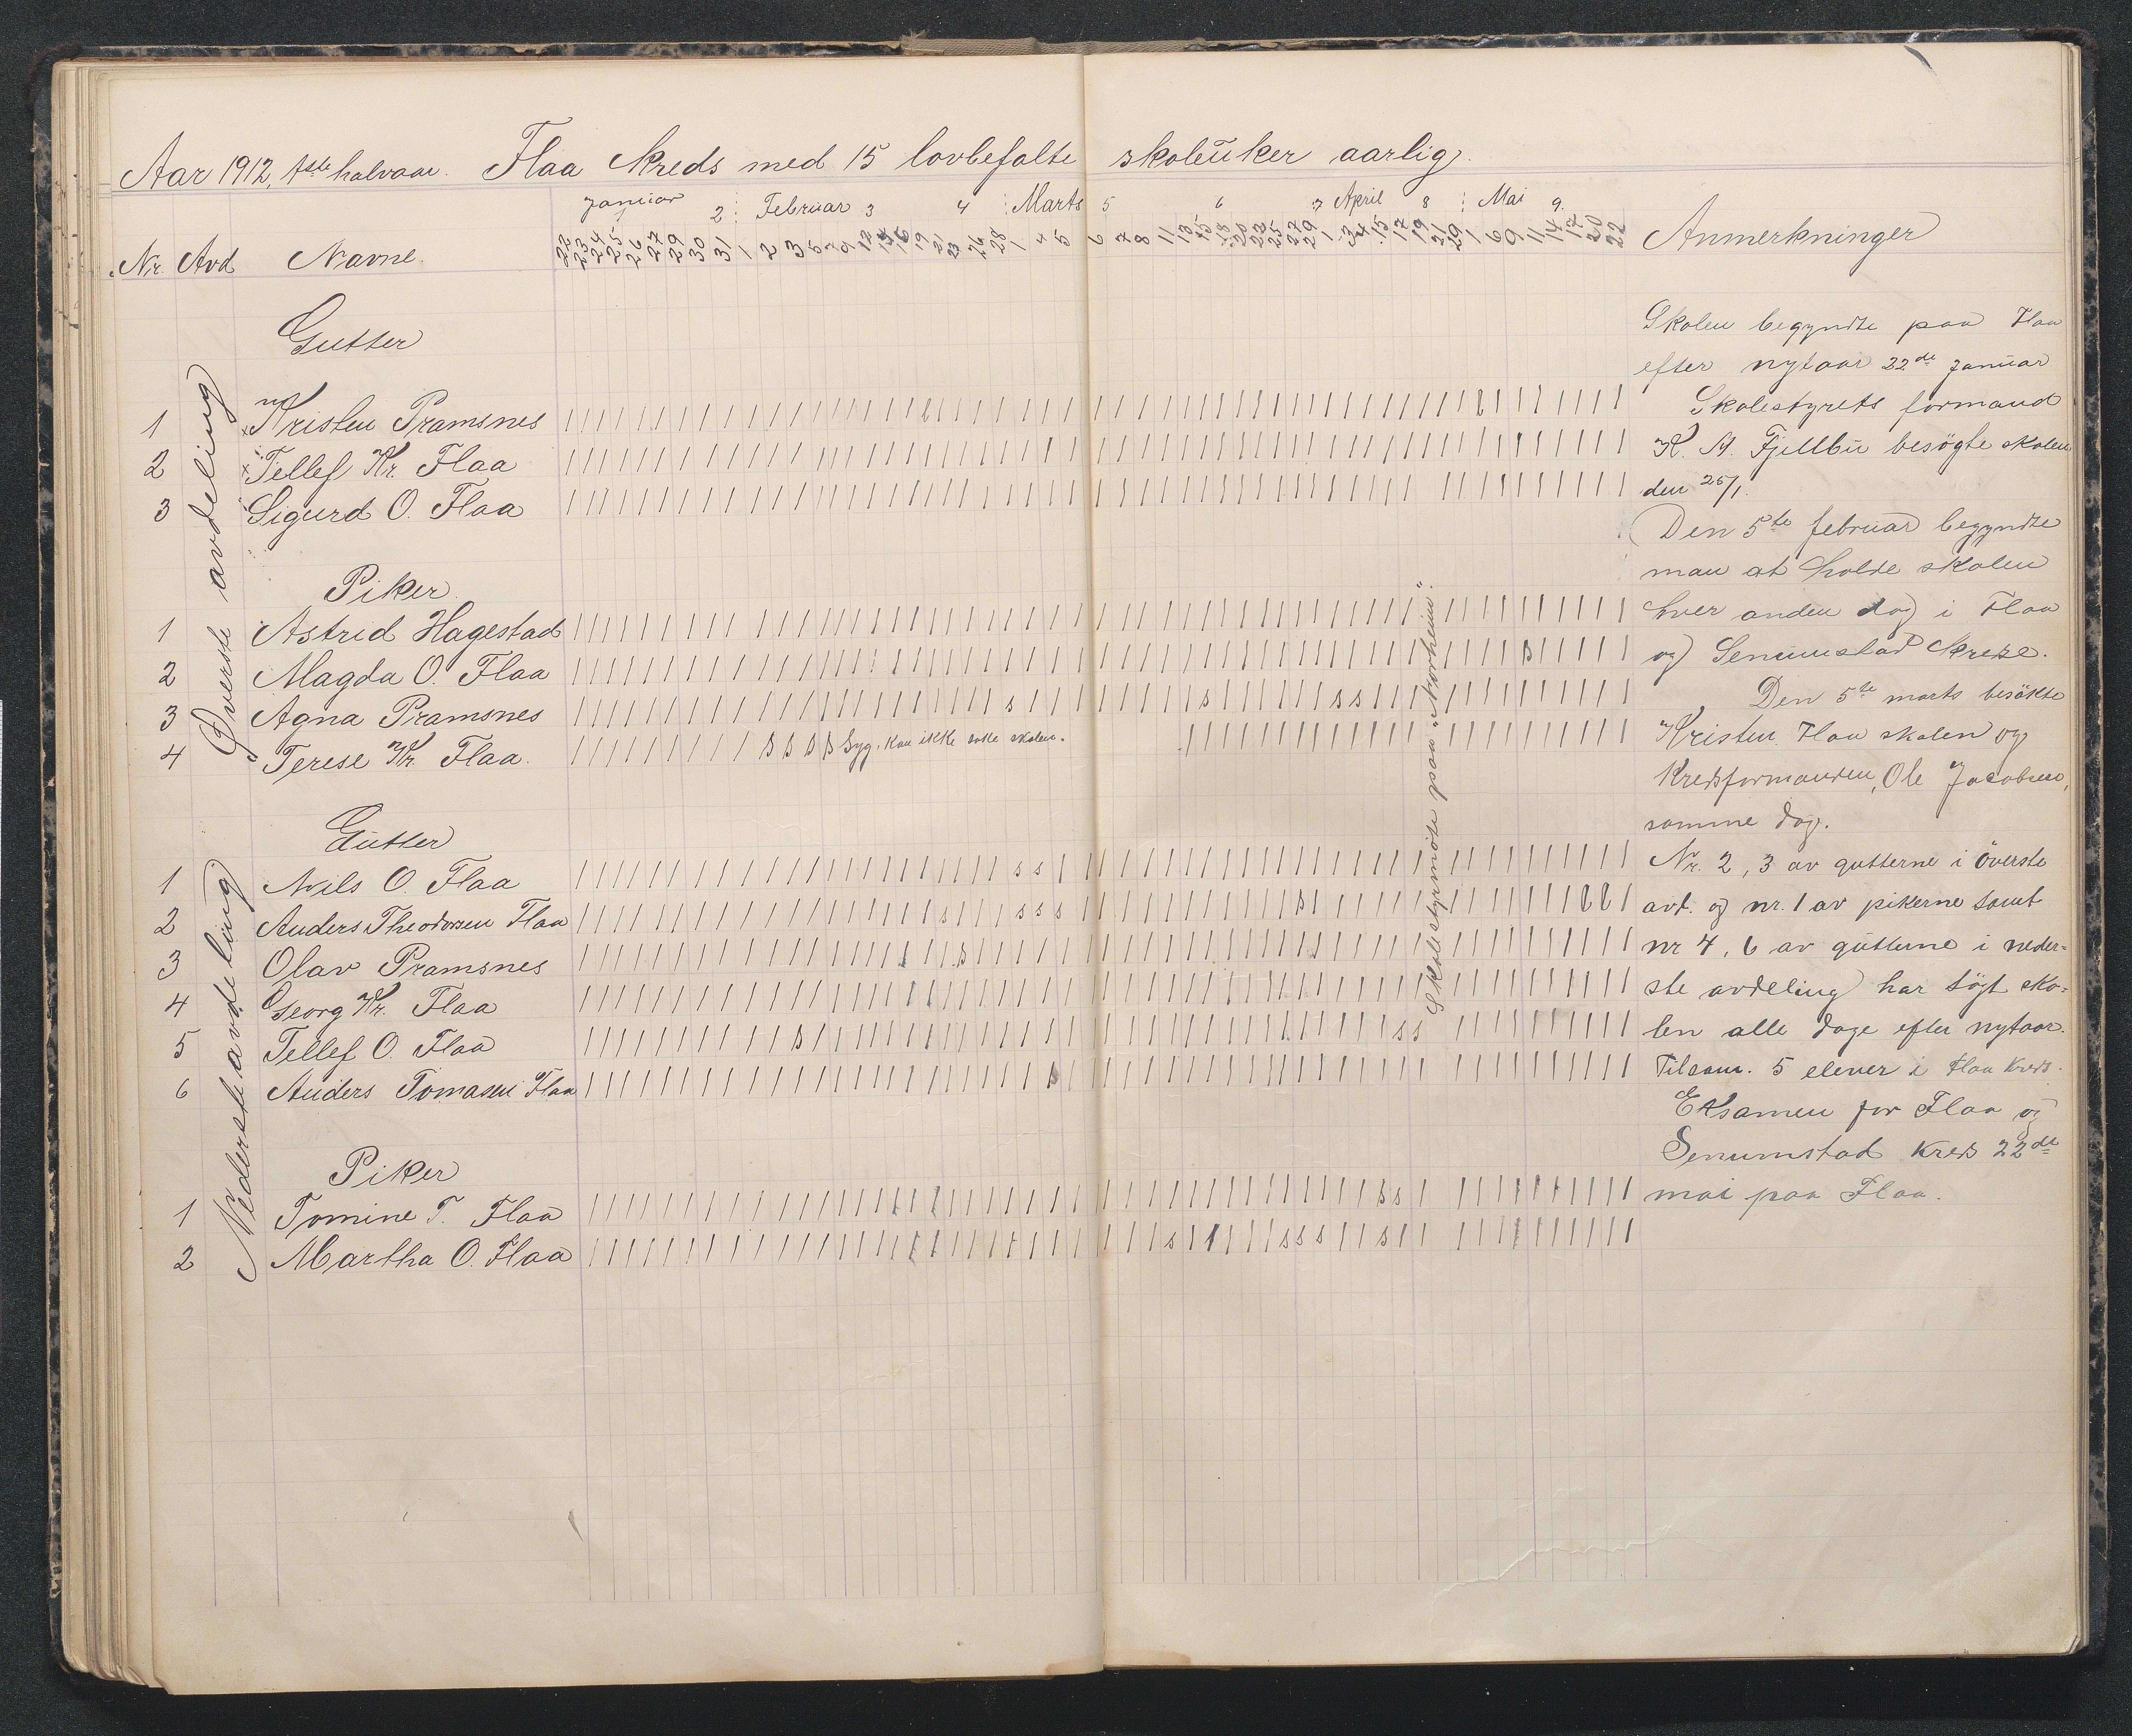 Aar 1912, 1ste halvaar. Flaa Kreds med 15 lovbefalte skoleuker aarlig.
Januar 1 2 Februar 3 4 Marts 5 6 7 April 8 Mai 9.
Nr. Avd Navne. 22 23 24 25 26 27 29 30 31 1 2 3 5 7 9 12 14 16 19 21 23 26 28 1 4 5 6 7 8 11 13 15 18 20 23 25 27 29 1 3 4 15 17 19 21 29 1 6 9 11 14 17 20 22 Anmerkninger
Øverste avdeling
Gutter
1 Kristen Pramsnes
2 Tellef Kr. Flaa
3 Sigurd O. Flaa
Piker
1 Astrid Hagestad
2 Magda O. Flaa
3 Agna Pramsnes
4 Terese Kr. Flaa. Syg. Kan ikke søke skolen.
Nederste avdeling
Gutter
1 Nils O. Flaa
2 Anders Theodorsen Flaa
3 Olav Pramsnes
4 Georg Kr. Flaa
5 Tellef O. Flaa
6 Anders Tomasen Flaa
Piker
1 Tomine T. Flaa
2 Martha O. Flaa
Skolestyrmöte paa „Norheim“.
Skolen begyndte paa Flaa
efter nytaar 22de januar
Skolestyrets formand
K. A. Fjellbu besögte skolen
den 25/1.
Den 5te februar begyndte
man at holde skolen
hver anden dag i Flaa
og Senumstad Kredse.
Den 5te marts besökte
Kristen Flaa skolen og
Kredsformanden, Ole Jacobsen,
samme dag.
Nr. 2, 3 av gutterne i överste
avd. og nr. 1 av pikerne samt
nr 4, 6 av gutterne i neder=
ste avdeling har sögt sko=
len alle dage efter nytaar.
Tilsam. 5 elever i Flaa Kreds.
Eksamen for Flaa og
Senumstad Kreds 22de
mai paa Flaa.